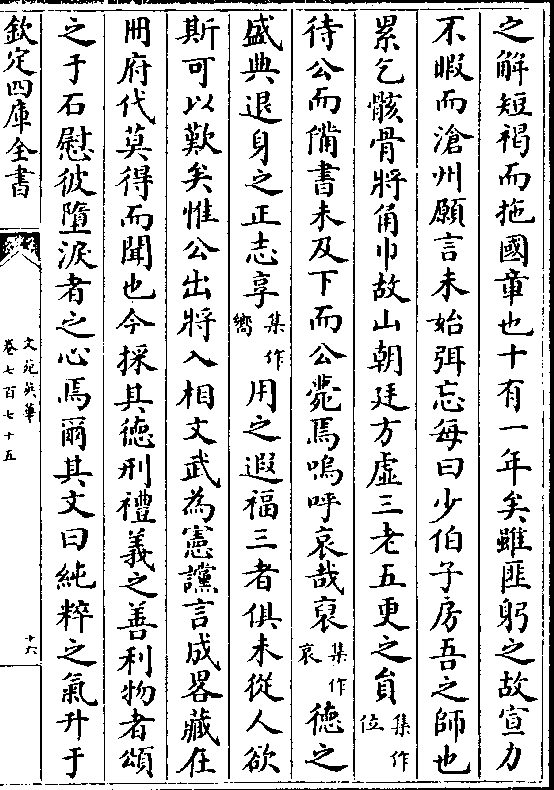 之解短褐而拖國章也十有一年矣雖匪躬之故宣力
不暇而滄州願言未始弭忘每曰少伯子房吾之師也
累乞骸骨將角巾故山朝廷方虛三老五更之員集作位
待公而備書未及下而公薨焉嗚呼哀哉裒集作哀德之
盛典退身之正志享集作嚮用之遐福三者俱未從人欲
斯可以歎矣惟公出將入相文武為憲讜言成畧藏在
冊府代莫得而聞也今採其德刑禮義之善利物者頌
之于石慰彼墮淚者之心焉爾其文曰純粹之氣升于
欽定四庫全書
文苑英華
卷七百七十五
十六